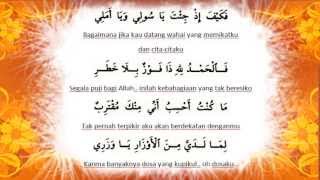 فَكَيْفَ إِذْ جِئْتَ يَا سُوْلِي وَيَا أَمَلِي
Bagaimana jika kau datang wahai yang memikatku
dan cita-citaku
فَالْحَمْدُ لِلّٰهِ ذَا فَوْزٌ بِلَا خَطَرِ
Segala puji bagi Allah.. inilah kebahagiaan yang tak beresiko
مَا كُنْتُ أَحْسِبُ أَنِّي مِنْكَ مُقْتَرِبٌ
Tak pernah terpikir aku akan berdekatan denganmu
لِمَا لَدَيَّ مِنَ الْأَوْزَارِ يَا وَزَرِي
Karena banyaknya dosa yang kupikul.. oh dosaku..